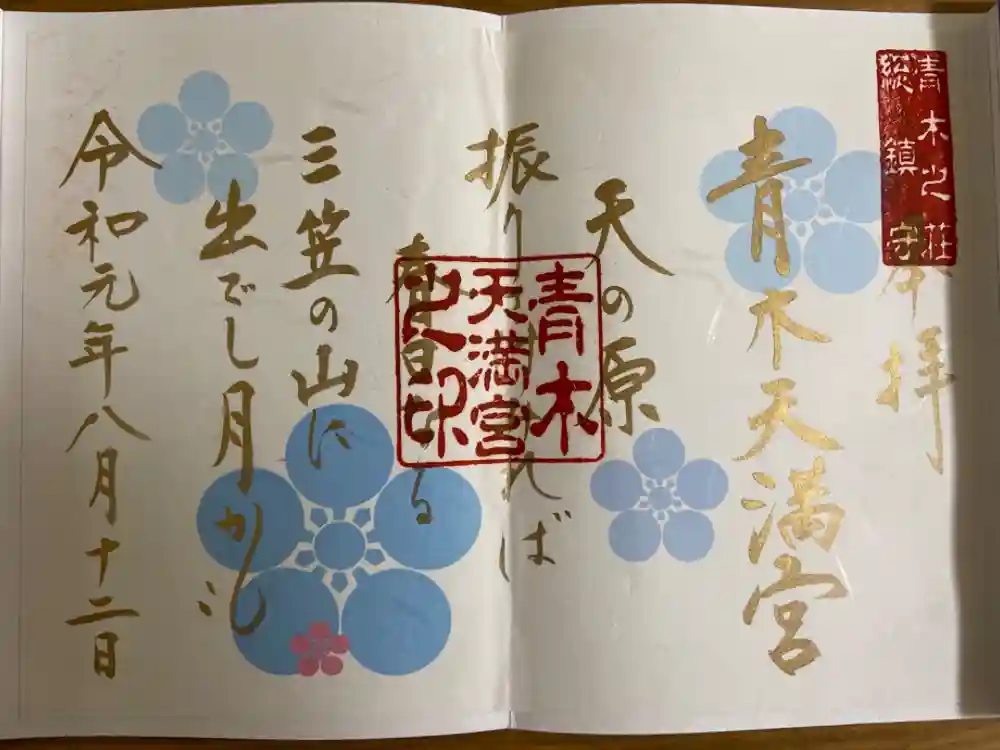 青木之荘
総鎮守
奉拝
青木天満宮
天の原
振りさけ見れば
春日なる
三笠の山に
出でし月かも
令和元年八月十二日
青木
天満宮
之印